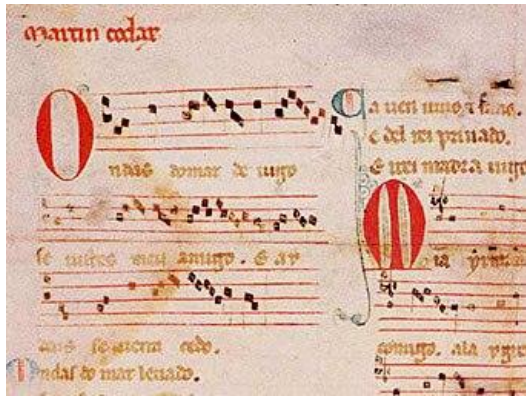 Martin codax
Ondas do mar de uigo
se uistes meu amigo. E ay
deus se uerra cedo.
Ondas do mar leuado.
Ca uen uiuo e sano.
E del rei priuado.
E irei madr a uigo
Mia yrmana
comigo. ala ygre